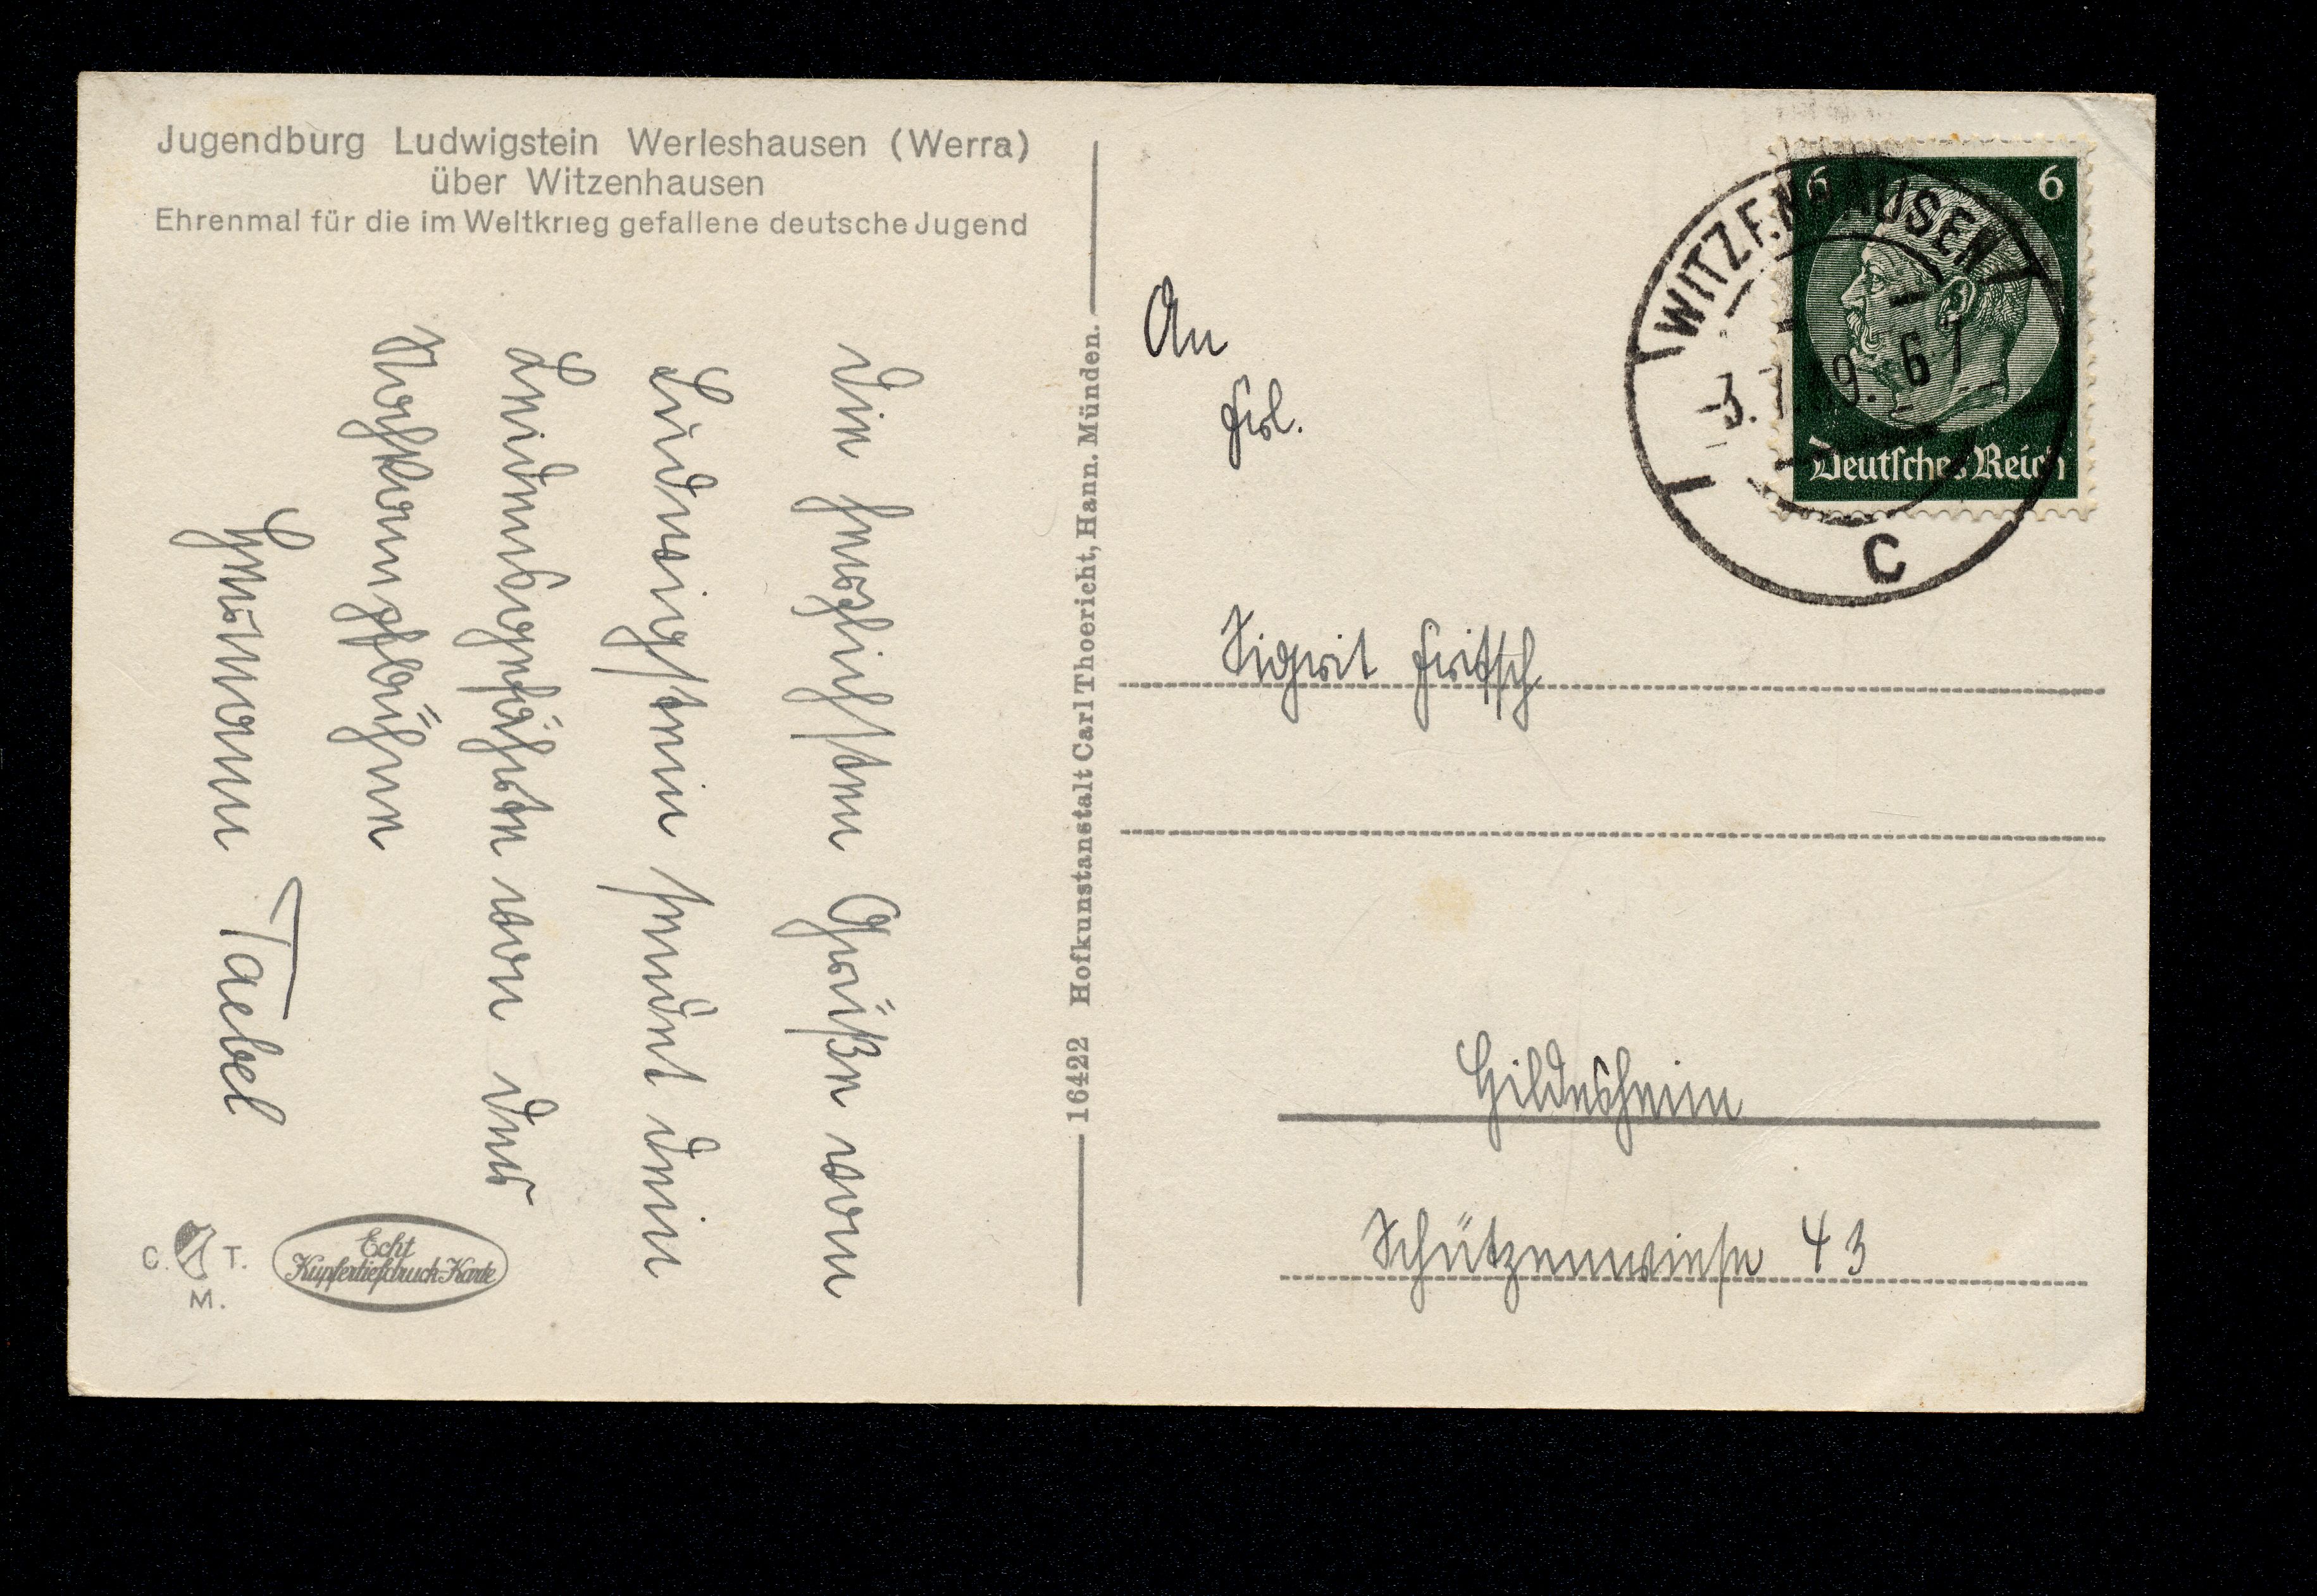 Jugendburg Ludwigstein Werleshausen (Werra)
über Witzenhausen
Ehrenmal für die im Weltkrieg gefallene deutsche Jugend
Die herzlichsten Grüße vom
Ludwigstein sendet dein
Leidensgefährte von der
Hermann Taebel
C. T.
M.
Echt
Kupfertiefdruck-Karte
16422 Hofkunstanstalt Carl Thoericht, Hann. Münden.
6 6
Deutsches Reich
WITZENHAUSEN
C
An
Frl.
Sigrit Fritsch
Hildesheim
Schützenwiese 43